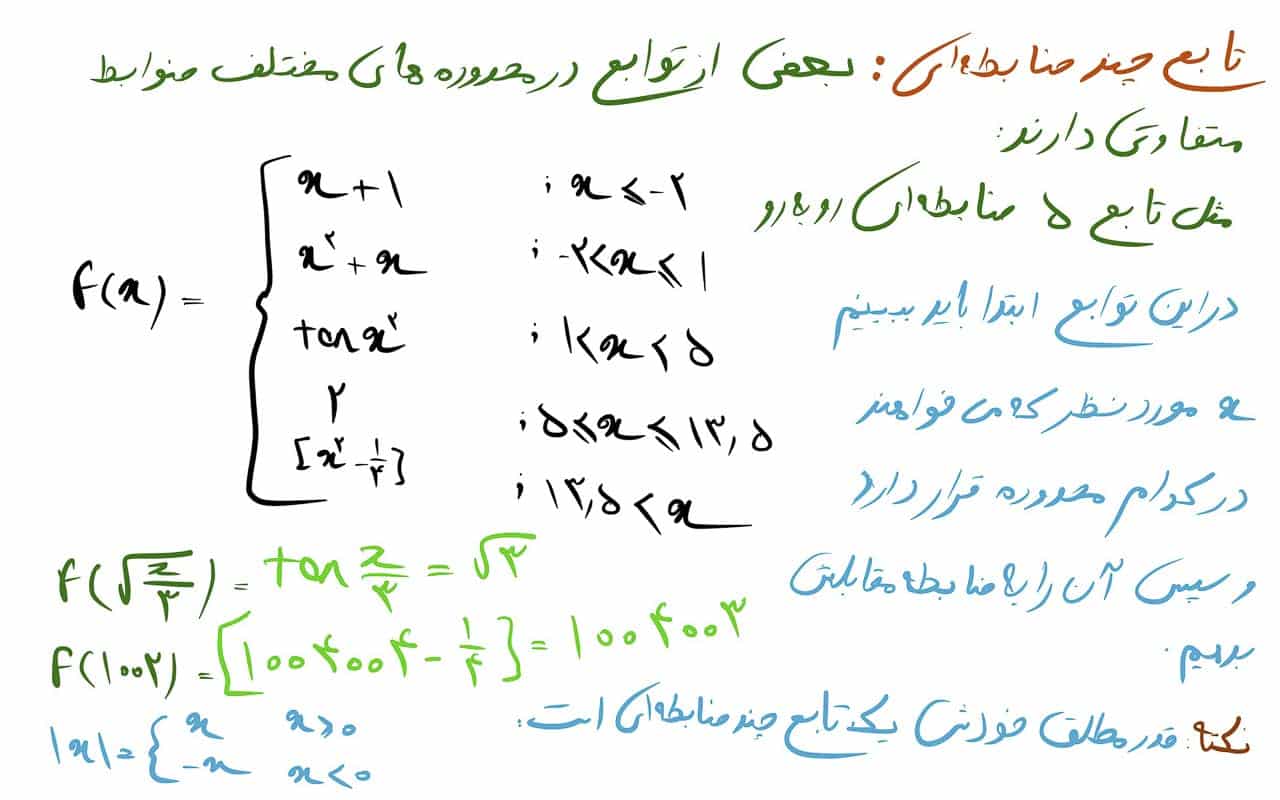 تابع چند ضابطه‌ای: بعضی از توابع در محدوده های مختلف ضوابط
متفاوتی دارند:
مثل تابع ۵ ضابطه‌ای روبه‌رو
f(x) = {
x + ۱ ; x ≤ -۲
x² + x ; -۲ < x ≤ ۱
tan x² ; ۱ < x < ۵
۲ ; ۵ ≤ x ≤ ۱۳,۵
[x² - ۱/۴] ; ۱۳,۵ < x
در این توابع ابتدا باید ببینیم
x مورد نظر که می خواهند
در کدام محدوده قرار دارد
و سپس آن را به ضابطه مقابلش
بدهیم.
f(√(π/۳)) = tan π/۳ = √۳
f(۱۰۰۲) = [۱۰۰۴۰۰۴ - ۱/۴] = ۱۰۰۴۰۰۳
نکته: قدر مطلق خودش یک تابع چند ضابطه‌ای است:
|x| = {
x x ≥ 0
-x x < 0